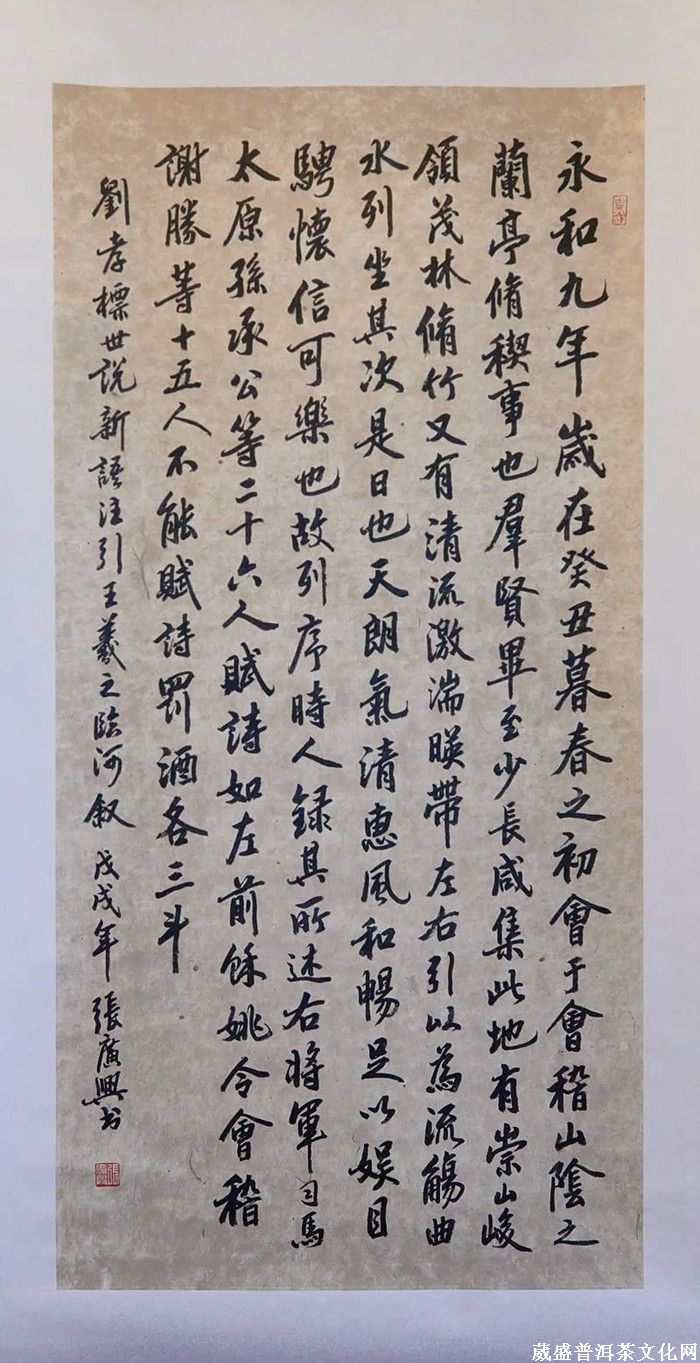 永和九年歲在癸丑暮春之初會于會稽山陰之
蘭亭脩稧事也羣賢畢至少長咸集此地有崇山峻
領茂林脩竹又有清流激湍暎帶左右引以爲流觴曲
水列坐其次是日也天朗氣清惠風和暢足以娱目
騁懷信可樂也故列序時人録其所述右將軍司馬
太原孫承公等二十六人賦詩如左前餘姚令會稽
謝勝等十五人不能賦詩罰酒各三斗
劉孝標世說新語注引王羲之臨河叙 戊戌年 張廣興书
葳盛普洱茶文化网